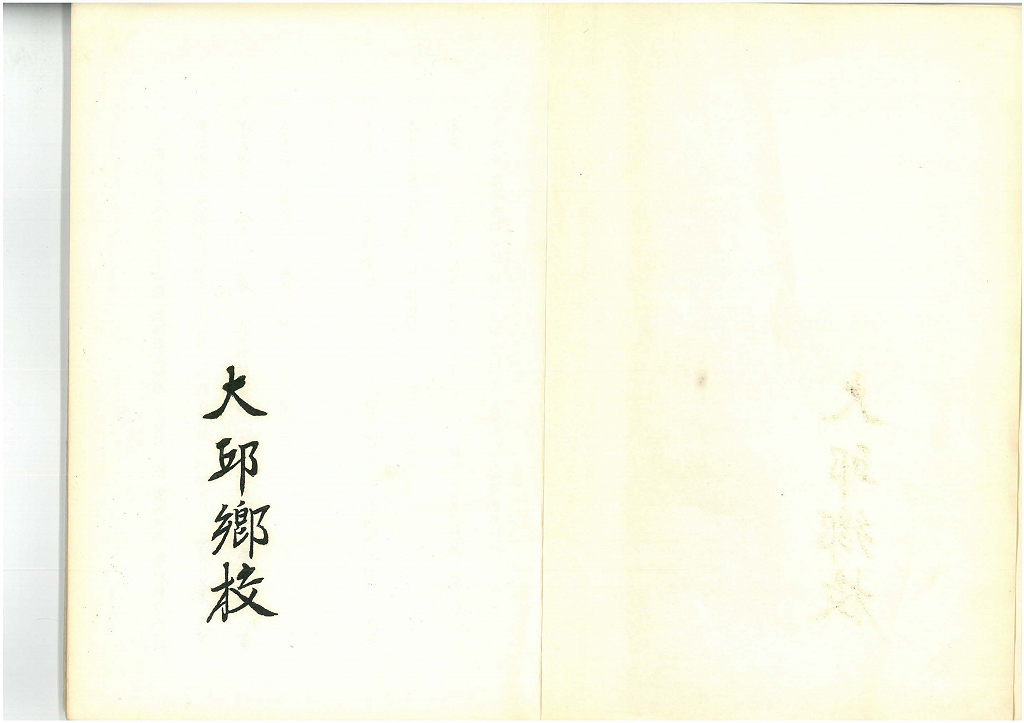 大邱鄕校